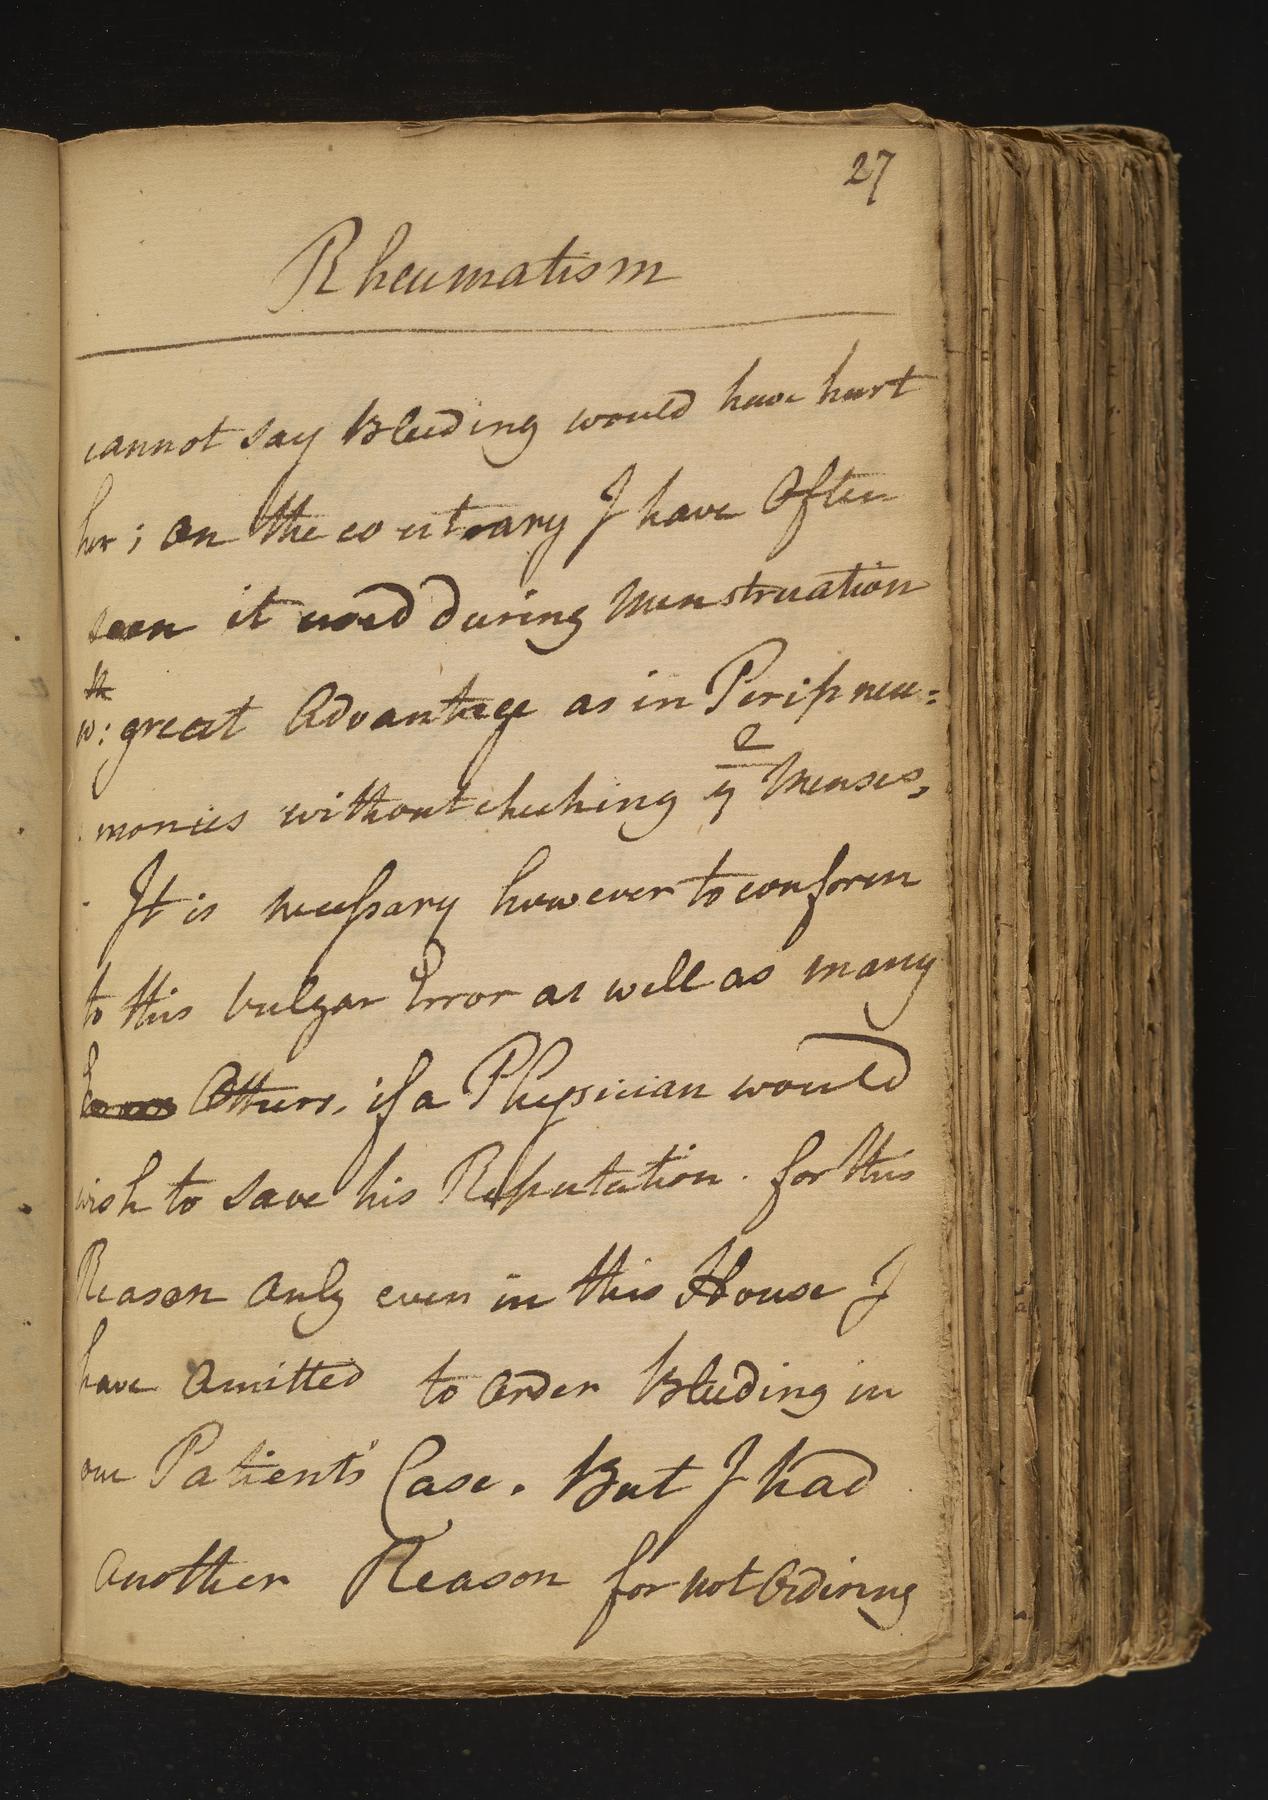 27
Rheumatism
cannot say Bleeding would have hurt
her; on the contrary I have Often
seen it used during Menstruation
wth: great Advantage as in Peripneu=
monies without checking ye Menses,
It is necessary however to conform
to this vulgar Error as well as many
Others, if a Physician would
wish to save his Reputation. for this
Reason Only even in this House I
have Omitted to Order Bleeding in
our Patient's Case. But I had
Another Reason for not Ordiring